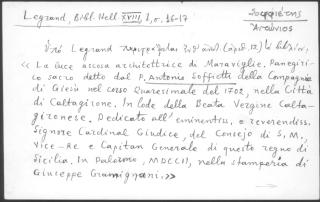 Legrand, Bibl. Hell XVIII 1, σ. 16-17
Σοφφιέτης
Ἀντώνιος
Ὑπὸ Legrand περιγράφεται (ἀριθ. 12) τὸ βιβλίον,
« La luce ascosa architettrice di Maraviglie. Panegiri-
co sacro detto dal P. Antonio Soffietti della Compagnia
di Giesù nel corso Quaresimale del 1702, nella Città
di Caltagirone. In lode della Beata Vergine Calta-
gironese. Dedicato all' eminentiss. e reverendiss.
Signore Cardinal Giudice, del Consejo di S. M.,
Vice-Re e Capitan Generale di questo regno di
Sicilia. In Palermo, MDCCII, nella stamperia di
Giuseppe Gramignani. »